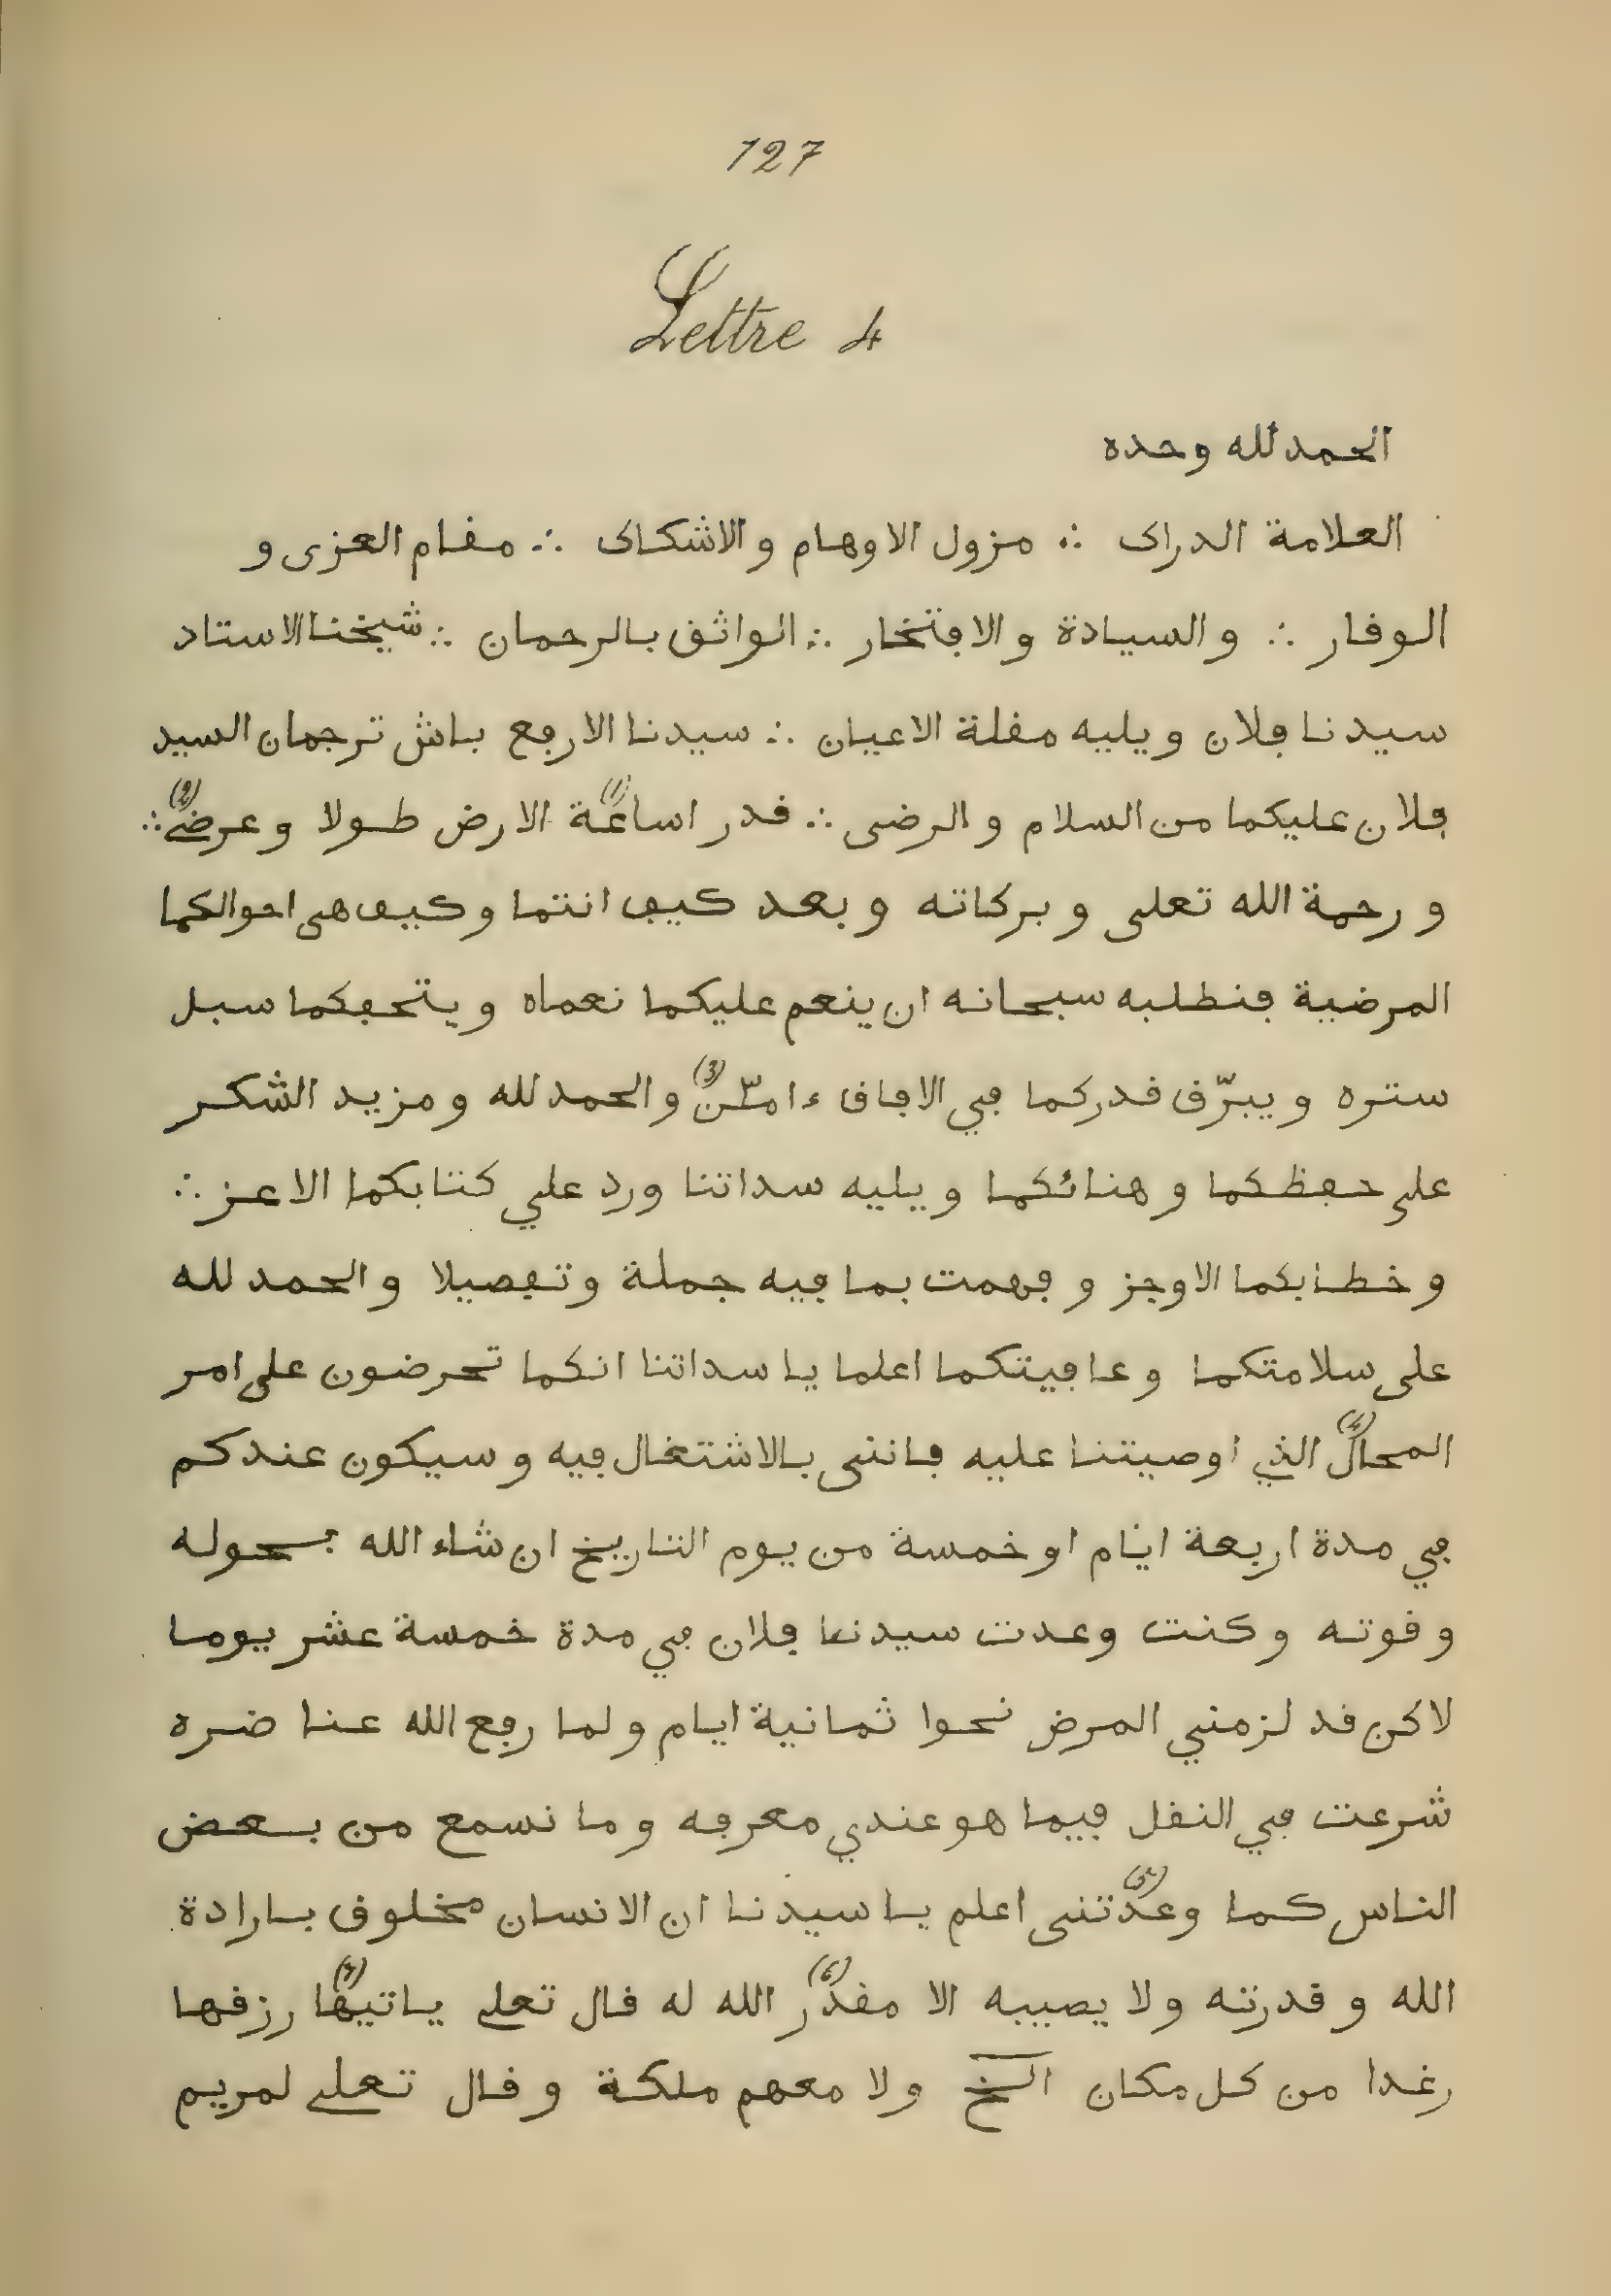 127
Lettre 4
الحمد لله وحده
العلامة الدراك ∴ مزول الاوهام والاشكاك ∴ مقام العزى و
الوقار ∴ والسيادة والافتخار ∴ الواثق بالرحمان ∴ شيخنا الاستاد
سيدنا فلان ويليه مقلة الاعيان ∴ سيدنا الارفع باش ترجمان السيد
فلان عليكما من السلام والرضى ∴ قدر اساعة (1) الارض طولا وعرضى (2) ∴
ورحمة الله تعلى وبركاته وبعد كيف انتما وكيف هى احوالكما
المرضية فنطلبه سبحانه ان ينعم عليكما نعماه ويتحفكما سبل
ستره ويبرّق قدركما في الافاق ءامّن (3) والحمد لله ومزيد الشكر
على حفظكما وهنائكما ويليه سداتنا ورد علي كتابكما الاعز ∴
وخطابكما الاوجز وفهمت بما فيه جملة وتفصيلا والحمد لله
على سلامتكما وعافيتكما اعلما يا سداتنا انكما تحرضون على امر
المحال (4) الذي اوصيتنا عليه فاننى بالاشتغال فيه وسيكون عندكم
في مدة اربعة ايام او خمسة من يوم التاريخ ان شاء الله بحوله
وقوته وكنت وعدت سيدنا فلان في مدة خمسة عشر يوما
لاكن قد لزمني المرض نحوا ثمانية ايام ولما رفع الله عنا ضره
شرعت في النقل فيما هو عندي معرفه وما نسمع من بعض
الناس كما وعدّتنى (5) اعلم يا سيدنا ان الانسان مخلوق بارادة
الله وقدرته ولا يصيبه الا مقدّر (6) الله له قال تعلى ياتيها (7) رزقها
رغدا من كل مكان الـخ ولا معهم ملكة وقال تعلى لمريم